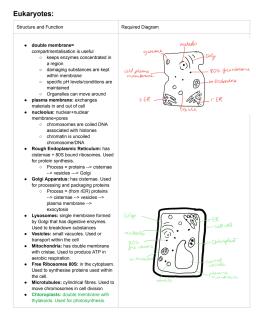 Eukaryotes:
Structure and Function
Required Diagram
double membrane=
compartmentalisation is useful
keeps enzymes concentrated in
a region
damaging substances are kept
within membrane
specific pH levels/conditions are
maintained
Organelles can move around
plasma membrane: exchanges
materials in and out of cell
nucleolus: nuclear+nuclear
membrane+pores
chromosomes are coiled DNA
associated with histones
chromatin is uncoiled
chromosome/DNA
Rough Endoplasmic Reticulum: has
cisternae + 80S bound ribosomes. Used
for protein synthesis.
Process = proteins --> cisternae
--> vesicles --> Golgi
Golgi Apparatus: has cisternae. Used
for processing and packaging proteins
Process = (from rER) proteins
--> cisternae --> vesicles -->
plasma membrane -->
exocytosis
Lysosomes: single membrane formed
by Golgi that has digestive enzymes.
Used to breakdown substances
Vesicles: small vacuoles. Used or
transport within the cell
Mitochondria: has double membrane
with cristae. Used to produce ATP in
aerobic respiration
Free Ribosomes 80S: in the cytoplasm.
Used to synthesise proteins used within
the cell.
Microtubules: cylindrical fibres. Used to
move chromosomes in cell division
Chloroplasts: double membrane with
thylakoids. Used for photosynthesis
Golgi
80S ribosomes
mitochondria
cell plasma
membrane
rER
rER
Golgi
rER
80S
chloroplast
plasma
membrane